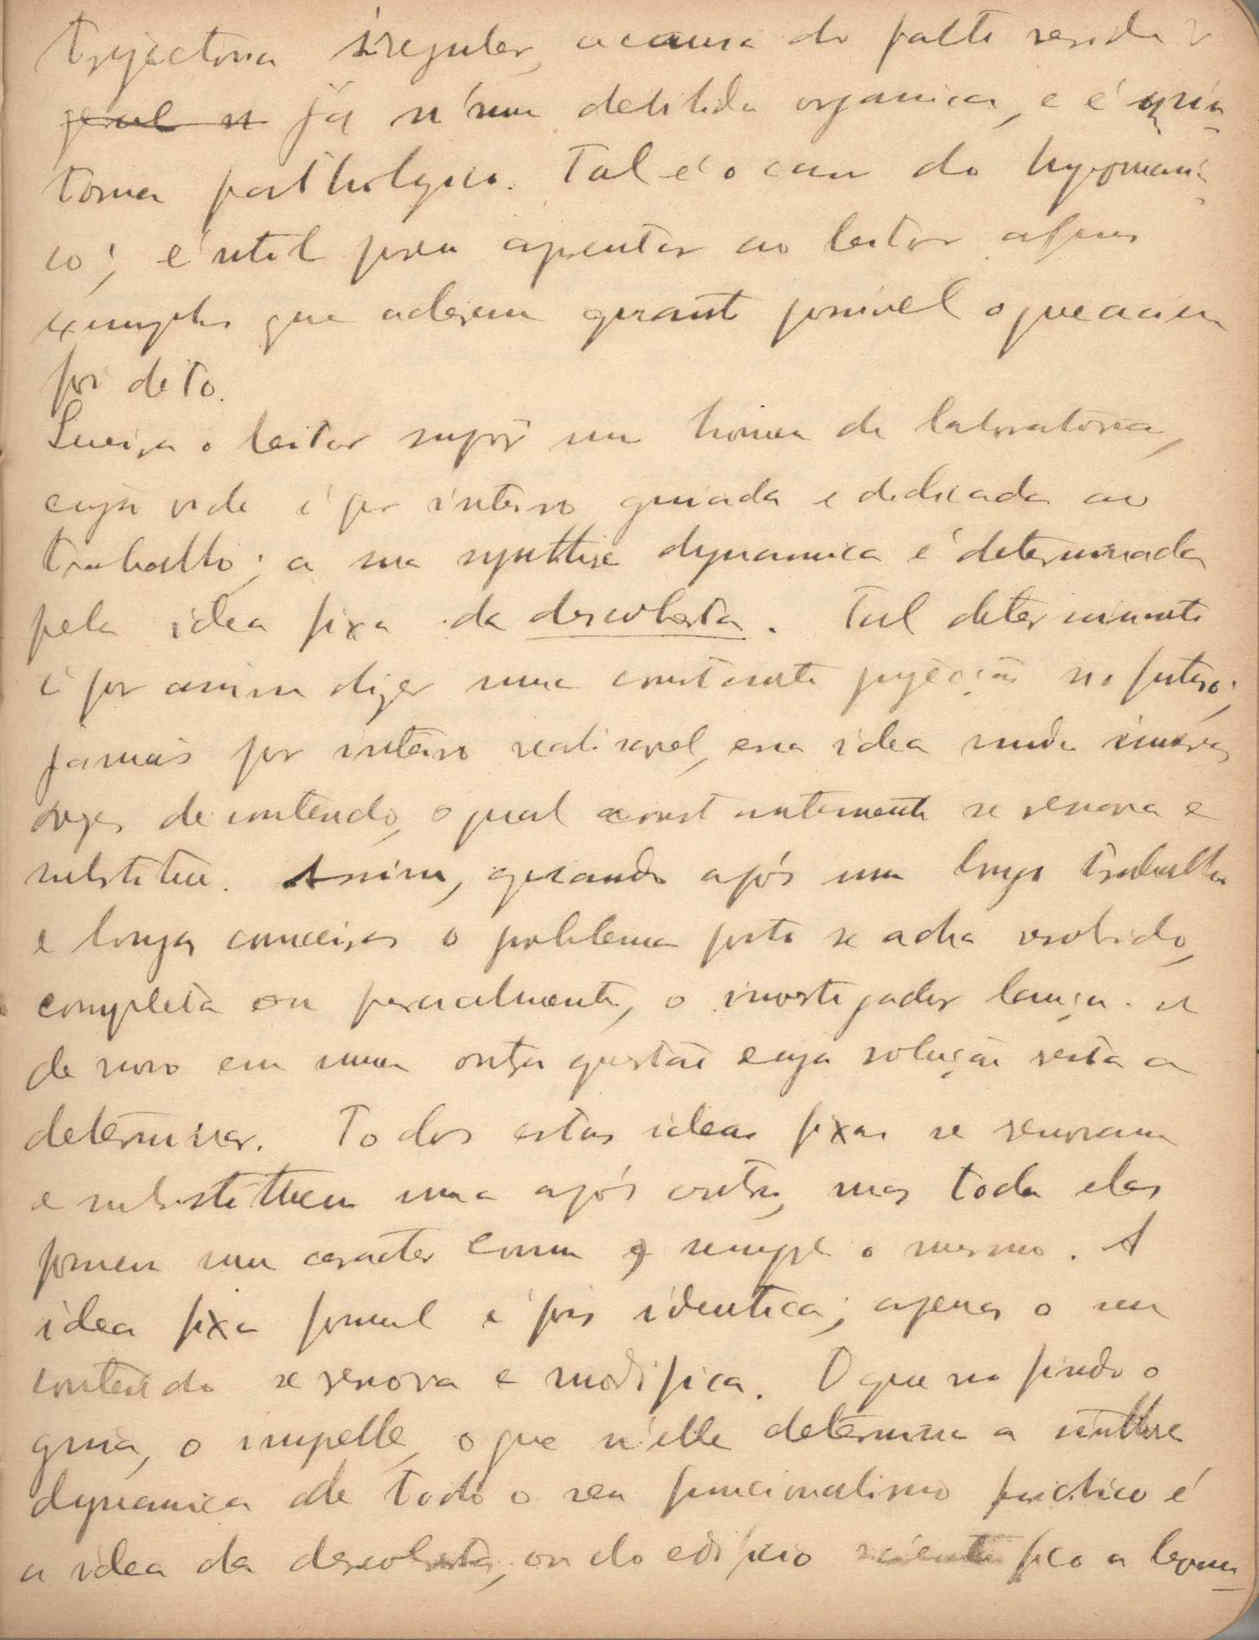 trajectoria irregular, a causa da falta reside
geral n já n'uma debilidade organica, e é syn
toma pathologico. Tal é o caso do hypomani
co; é util para apontar ao leitor alguns
exemplos que aclarem quanto possivel o que acima
foi dito.
Queira o leitor suppôr um homem de laboratorio,
cuja vida é por inteiro guiada e dedicada ao
trabalho; a sua synthese dynamica é determinada
pela idea fixa da descoberta. Tal determinante
é por assim dizer uma constante projecção no futuro;
jamais por inteiro realisavel, essa idea muda inumeras
vezes de conteudo, o qual constantemente se renova e
substitue. Assim, quando após um longo trabalho
e longas canceiras o problema posto se acha resolvido,
completa ou parcialmente, o investigador lança-se
de novo em uma outra questão cuja solução resta a
determinar. Todas estas ideas fixas se renovam
e substituem uma após outra, mas todas ellas
possuem um caracter comum e sempre o mesmo. A
idea fixa formal é pois identica; apenas o seu
conteudo se renova e modifica. O que no fundo o
guia, o impelle, o que n'elle determina a sinthese
dynamica de todo o seu funcionalismo psichico é
a idea da descoberta, ou do edificio scientifico a levan